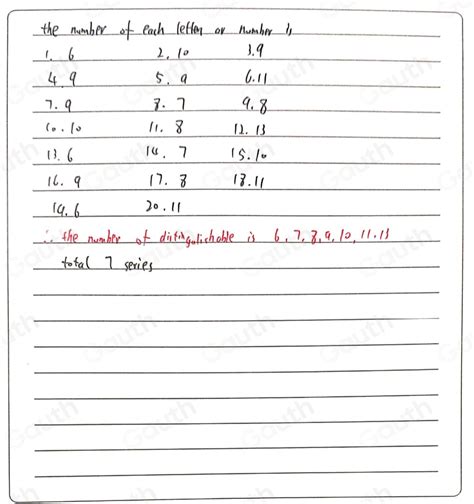 the number of each letter or number is
1. 6 2. 10 3. 9
4. 9 5. 9 6. 11
7. 9 8. 7 9. 8
10. 10 11. 8 12. 13
13. 6 14. 7 15. 10
16. 9 17. 8 18. 11
19. 6 20. 11
∴ the number of distinguishable is 6, 7, 8, 9, 10, 11, 13
total 7 series
Gauth